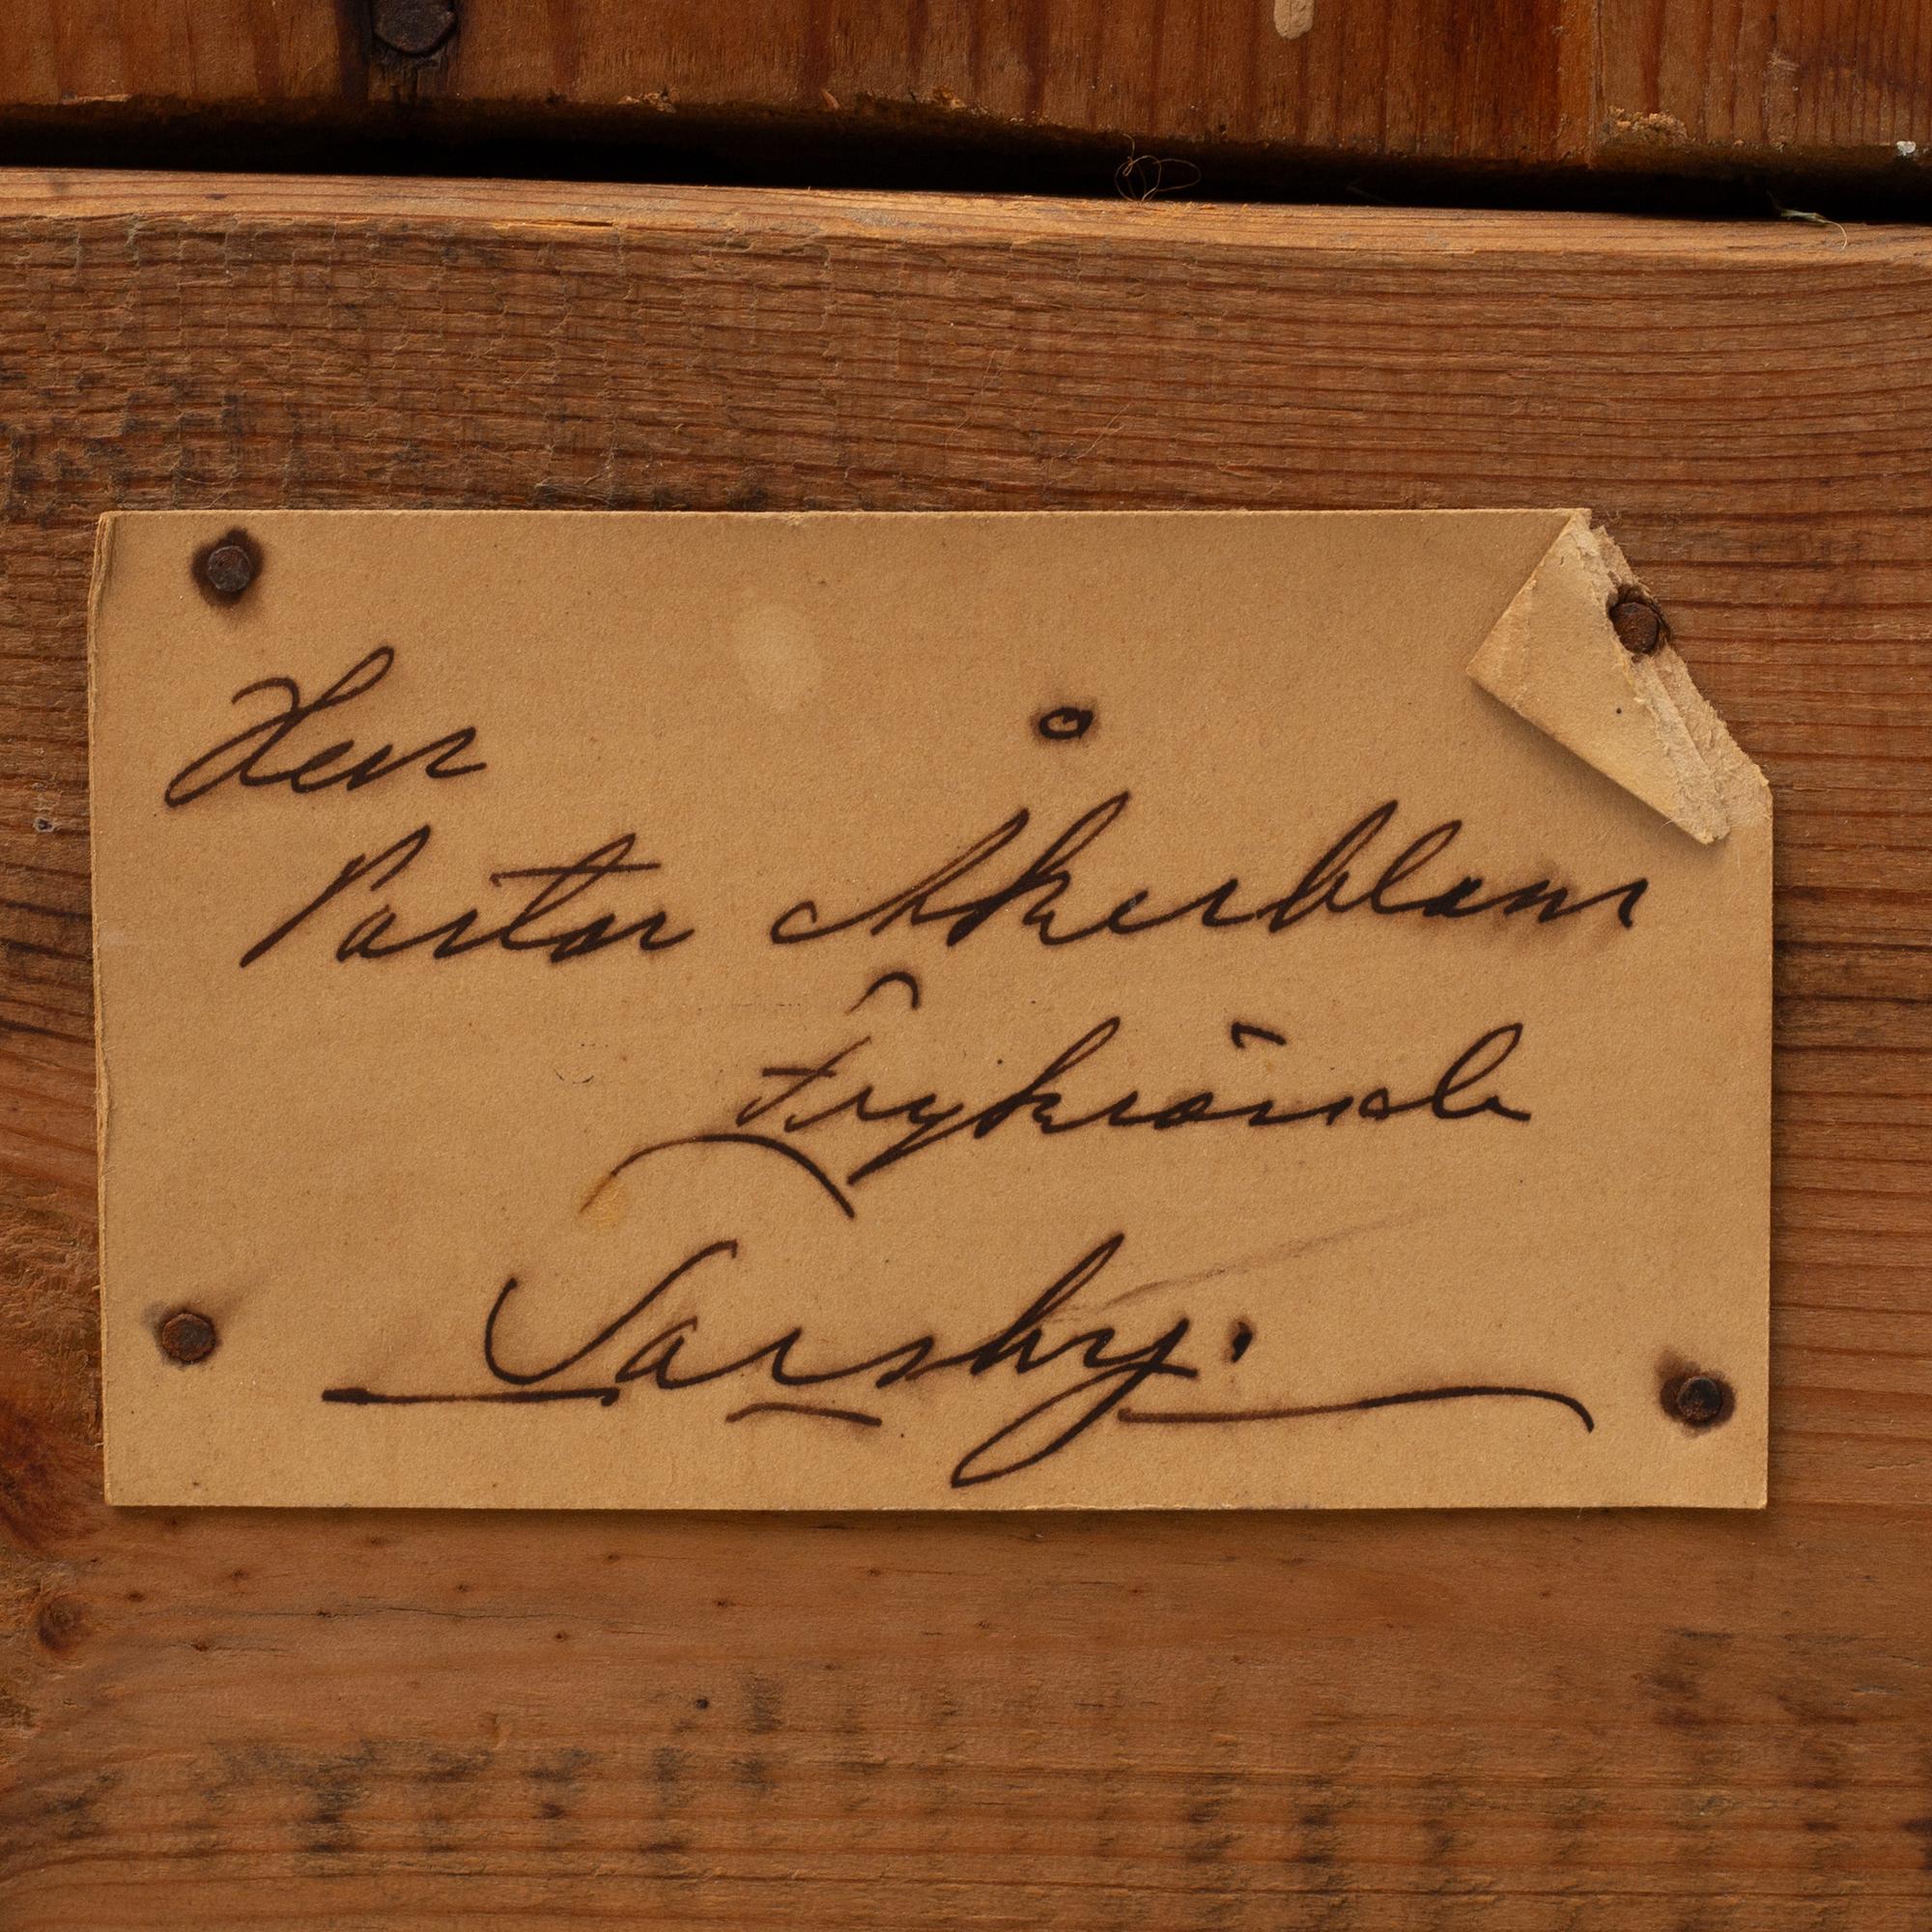 Herr
Pastor Åkerblom
Fryksände
Torsby.